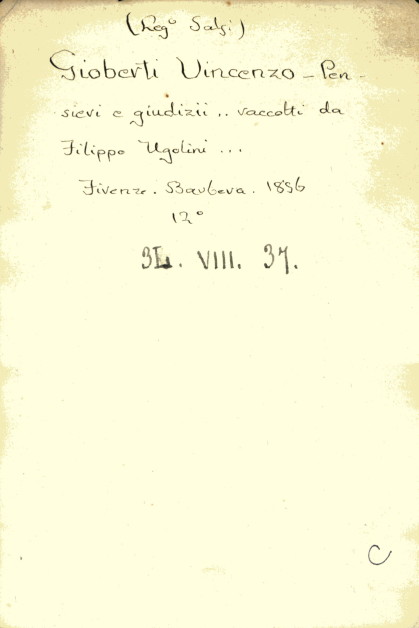 (Leg° Salfi)
Gioberti Vincenzo - Pen-
sieri e giudizii .. raccolti da
Filippo Ugolini ...
Firenze. Barbera. 1856
12°
3L. VIII. 37.
C